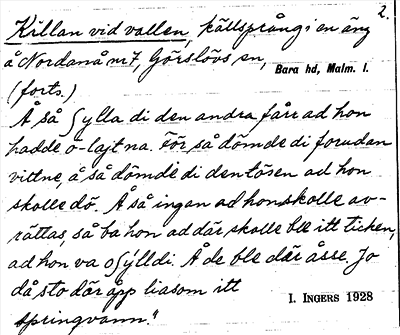 2.
Killan vid vallen, källsprång i en äng
å Nordanå nr 7, Görslövs sn,
Bara hd, Malm. l.
(forts.)
Å så ſylla di den andra fårr ad hon
hadde o-lajt na. För så dömde di forudan
vittne, å så dömde di den tösen ad hon
skolle dö. Å så ingan ad hon skolle av-
rättas, så ba hon ad där skolle ble itt ticken,
ad hon va oſylldi. Å de ble där åsse. Jo
då sto där åpp liasom itt
springvann."
I. INGERS 1928